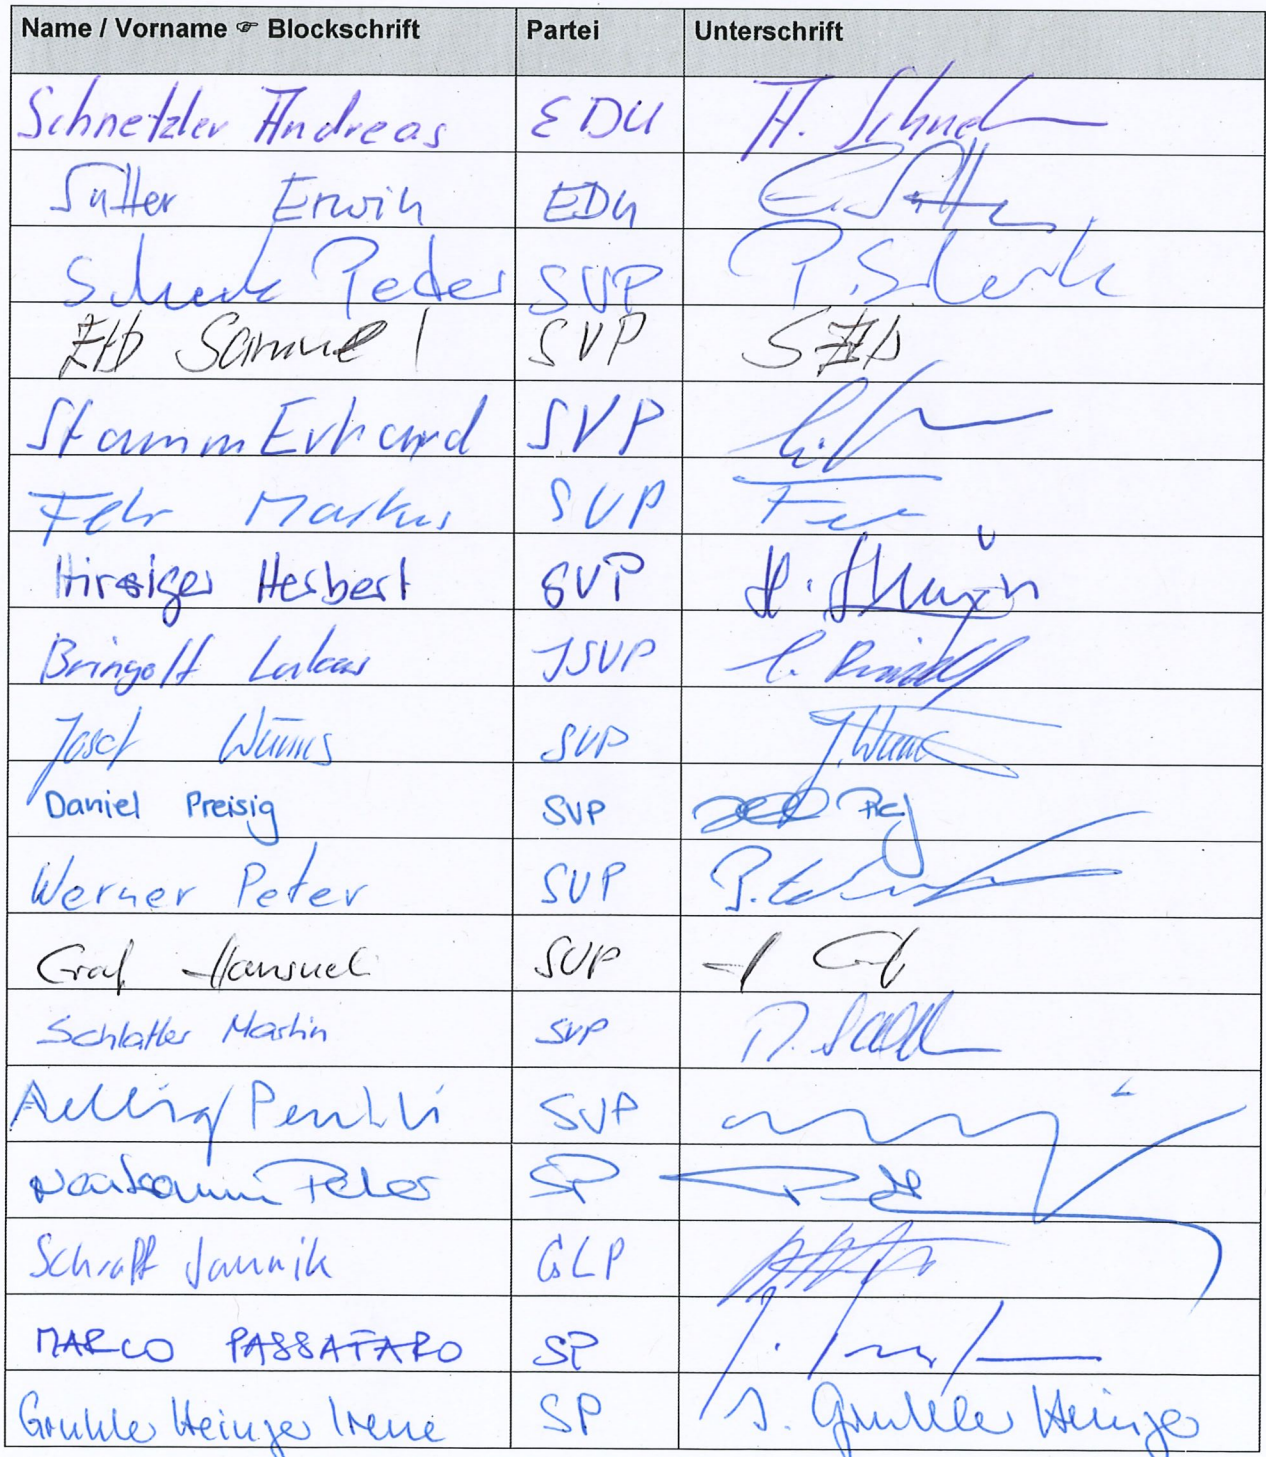 Name / Vorname ☞ Blockschrift Partei Unterschrift
Schnetzler Andreas EDU A. Schnetz
Sutter Erwin EDU E. Sutter
Schenk Peter SVP P. Schenk
Erb Samuel SVP S Erb
Stamm Erhard SVP
Fehr Markus SVP
Hirsiger Herbert SVP H.
Bringolf Lukas JSVP L. Bringolf
Josef Würms SVP J. Würms
Daniel Preisig SVP
Werner Peter SVP P. Werner
Graf Hansueli SVP H Graf
Schlatter Martin SVP M. Schlatter
Aellig Pentti SVP
Neukomm Peter SP
Schraff Jannik GLP
MARCO PASSAFARO SP
Gruhler Heinzer Irene SP I. Gruhler Heinzer